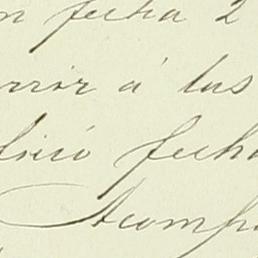 n fecha 2
rrir á las
fecha
Acomp